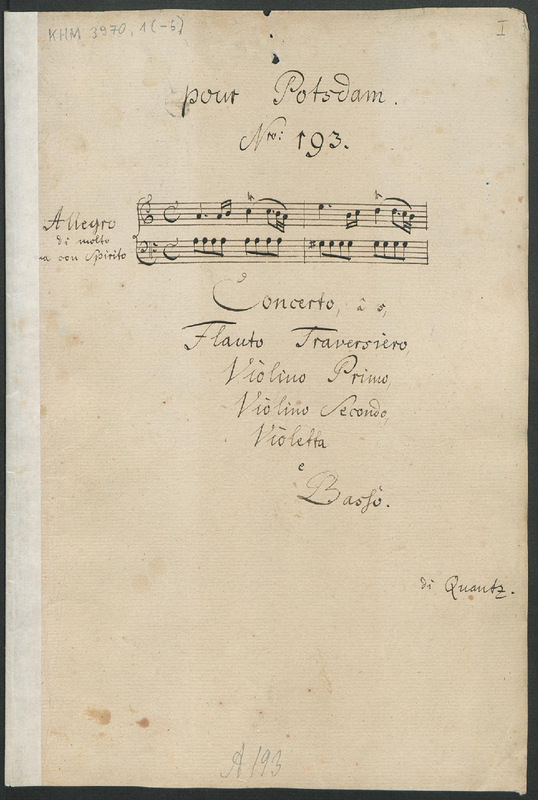 KHM 3970, 1(-5)
I
pour Potsdam.
Nro: 193.
Allegro
di molto
ma con Spirito
Concerto, â 5,
Flauto Traversiero,
Violino Primo,
Violino Secondo,
Violetta
e
Basso.
di Quantz.
A 193